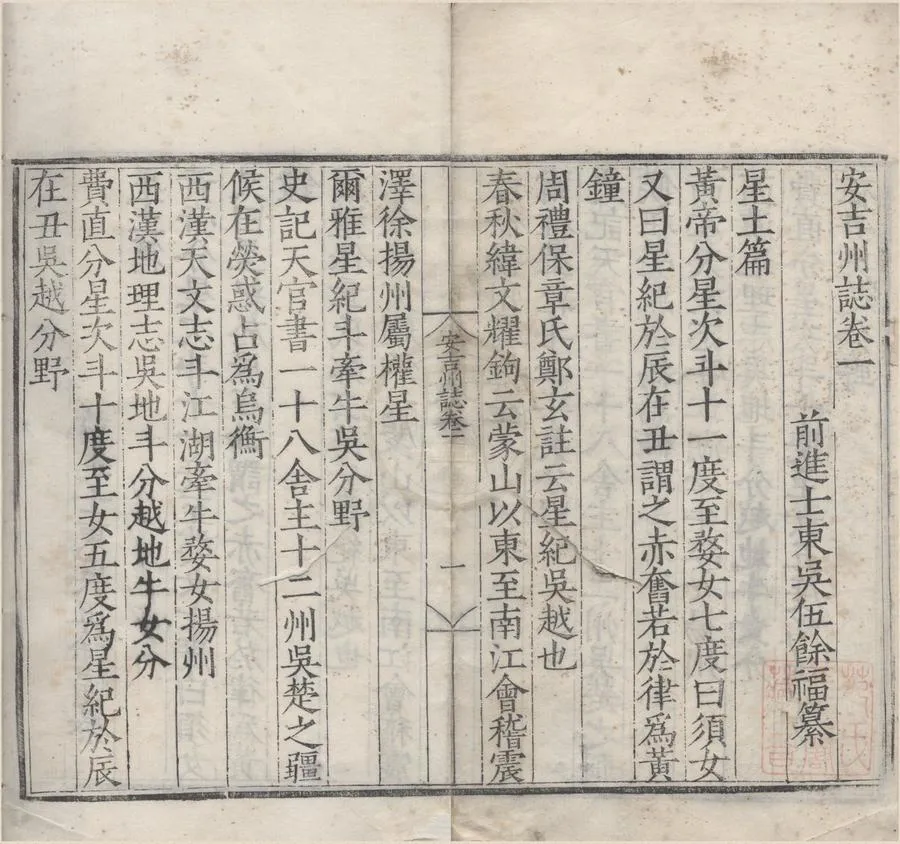 安吉州誌卷一
前進士東吳伍餘福纂
星土篇
黃帝分星次斗十一度至婺女七度曰須女
又曰星紀於辰在丑謂之赤奮若於律爲黃
鐘
周禮保章氏鄭玄註云星紀吳越也
春秋緯文耀鉤云蒙山以東至南江會稽震
安吉州誌卷一
一
澤徐揚州屬權星
爾雅星紀斗牽牛吳分野
史記天官書二十八舍主十二州吳楚之疆
候在熒惑占爲鳥衡
西漢天文志斗江湖牽牛婺女揚州
西漢地理志吳地斗分越地牛女分
費直分星次斗十度至女五度爲星紀於辰
在丑吳越分野